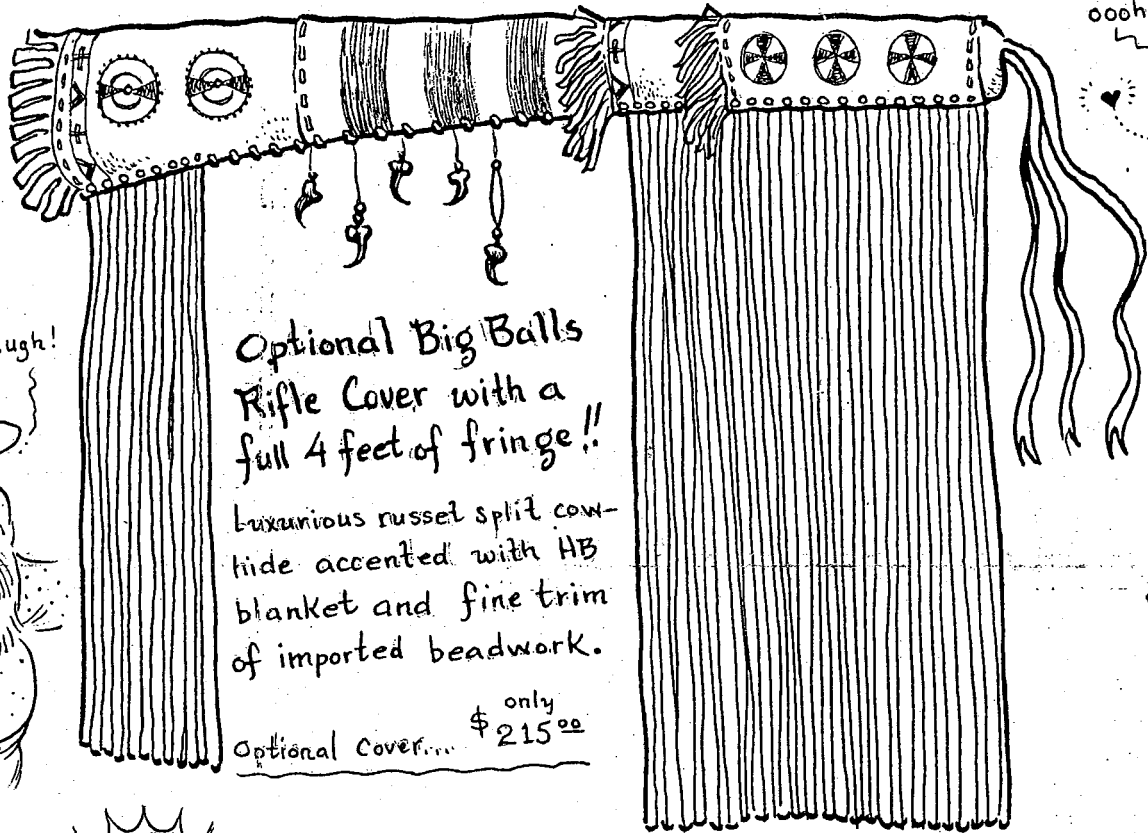 oooh
ugh!
Optional Big Balls
Rifle Cover with a
full 4 feet of fringe!!
Luxurious russet split cow-
hide accented with HB
blanket and fine trim
of imported beadwork.
Optional Cover.... only $215.00